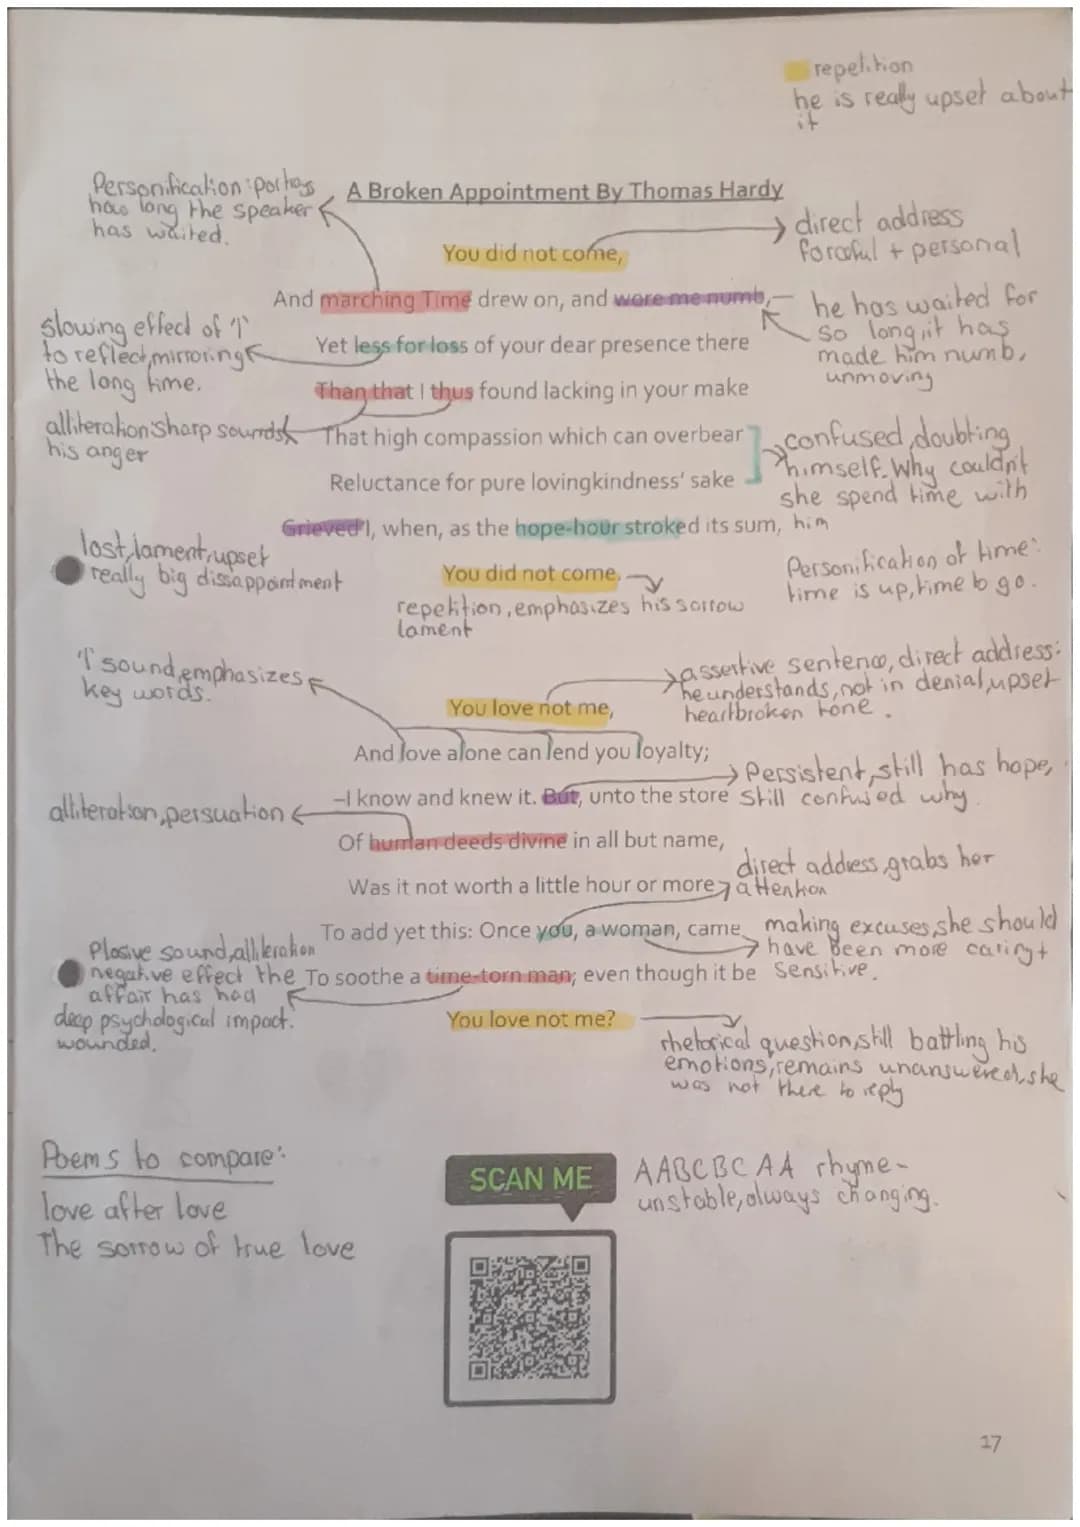 repetition
he is really upset about
it
Personification: portrays
how long the speaker
has waited.
A Broken Appointment By Thomas Hardy
direct address
forceful + personal
You did not come,
And marching Time drew on, and wore me numb,
he has waited for
so long, it has
made him numb,
unmoving
slowing effect of 'l'
to reflect, mirroring
the long time.
Yet less for loss of your dear presence there
Than that I thus found lacking in your make
alliteration: sharp sounds
his anger
That high compassion which can overbear
Reluctance for pure lovingkindness' sake
confused, doubting
himself. Why couldn't
she spend time with
him
Grieved I, when, as the hope-hour stroked its sum,
lost, lament, upset
really big dissappointment
You did not come.
repetition, emphasizes his sorrow
lament
Personification of time:
time is up, time to go.
'l' sound, emphasizes
key words.
assertive sentence, direct address:
he understands, not in denial, upset
heartbroken tone.
You love not me,
And love alone can lend you loyalty;
Persistent, still has hope,
still confused why
–I know and knew it. But, unto the store
alliteration, persuation
Of human deeds divine in all but name,
direct address, grabs her
attention
Was it not worth a little hour or more
To add yet this: Once you, a woman, came
making excuses, she should
have been more caring +
sensitive.
Plosive sound, alliteration
negative effect the
affair has had
deep psychological impact.
wounded.
To soothe a time-torn man; even though it be
You love not me?
rhetorical question, still battling his
emotions, remains unanswered, she
was not there to reply
Poems to compare:
love after love
The sorrow of true love
SCAN ME
AABCBCAA rhyme-
unstable, always changing.
17